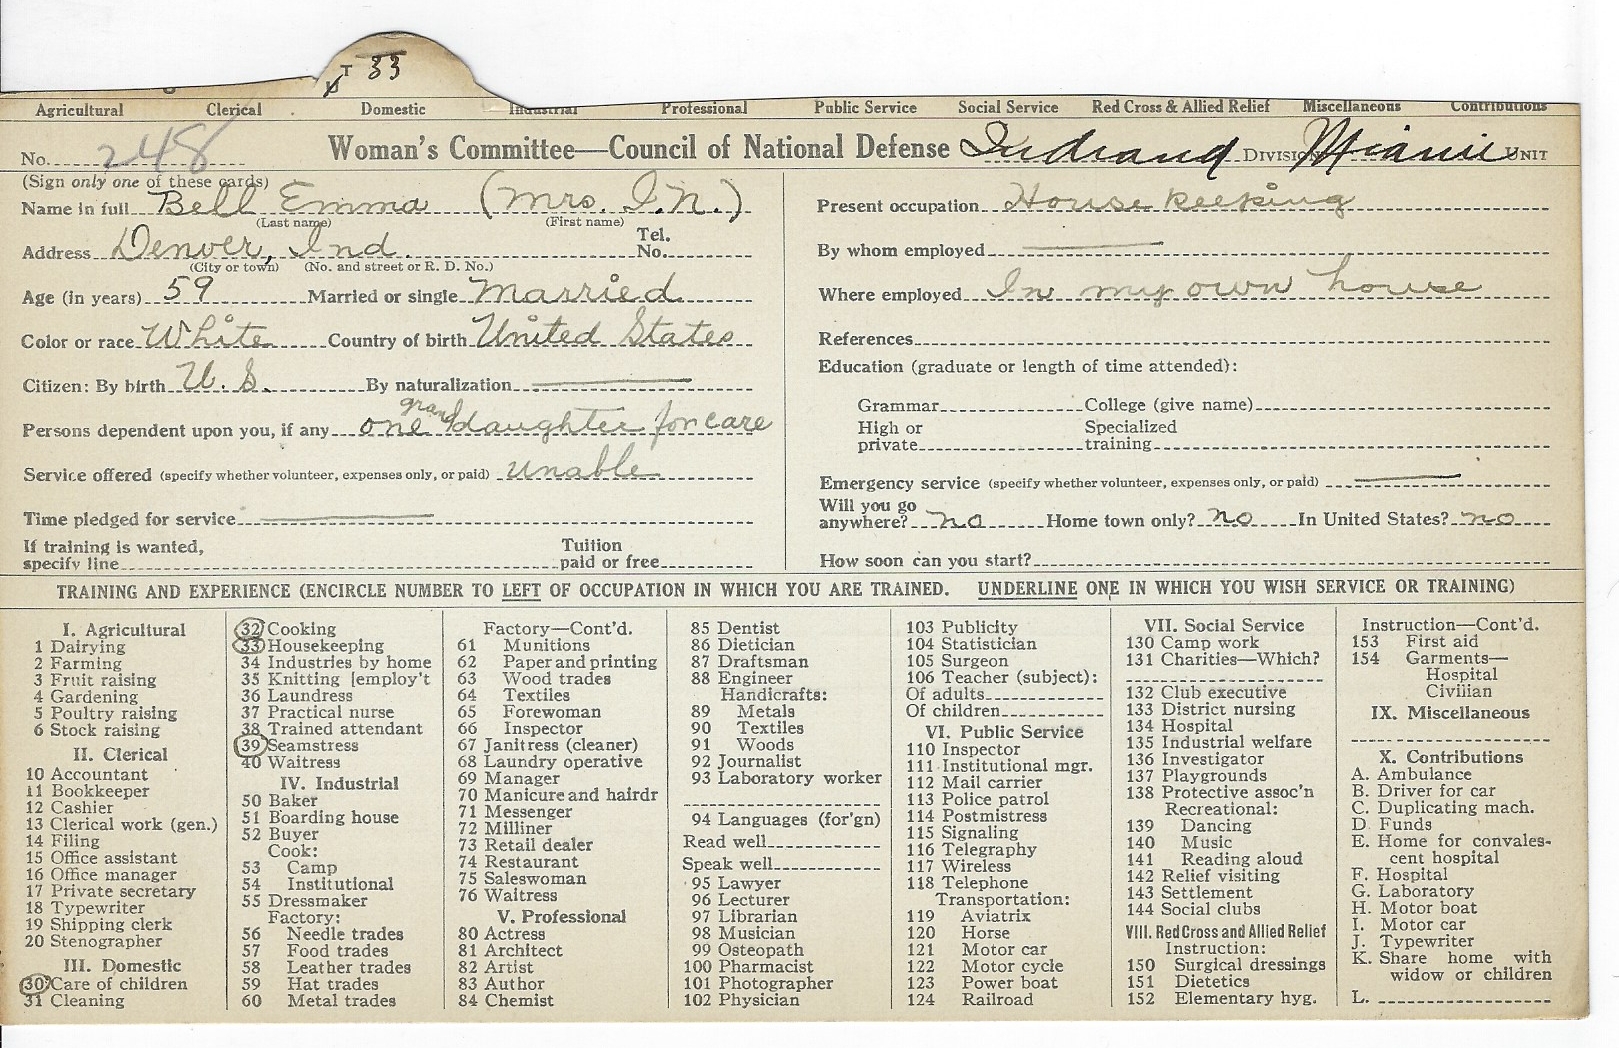 T 33
Agricultural Clerical Domestic Industrial Professional Public Service Social Service Red Cross & Allied Relief Miscellaneous Contributions
No. 248 Woman's Committee—Council of National Defense Indiana DIVISION Miami UNIT
(Sign only one of these cards)
Name in full Bell Emma (Mrs. I.N.)
(Last name) (First name)
Address Denver, Ind. Tel. No.
(City or town) (No. and street or R. D. No.)
Age (in years) 59 Married or single Married
Color or race White Country of birth United States
Citizen: By birth U. S. By naturalization
Persons dependent upon you, if any one granddaughter for care
Service offered (specify whether volunteer, expenses only, or paid) unable
Time pledged for service
If training is wanted, specify line Tuition paid or free
Present occupation House keeping
By whom employed
Where employed In my own house
References
Education (graduate or length of time attended):
Grammar College (give name)
High or private Specialized training
Emergency service (specify whether volunteer, expenses only, or paid)
Will you go anywhere? no Home town only? no In United States? no
How soon can you start?
TRAINING AND EXPERIENCE (ENCIRCLE NUMBER TO LEFT OF OCCUPATION IN WHICH YOU ARE TRAINED. UNDERLINE ONE IN WHICH YOU WISH SERVICE OR TRAINING)
I. Agricultural
1 Dairying
2 Farming
3 Fruit raising
4 Gardening
5 Poultry raising
6 Stock raising
II. Clerical
10 Accountant
11 Bookkeeper
12 Cashier
13 Clerical work (gen.)
14 Filing
15 Office assistant
16 Office manager
17 Private secretary
18 Typewriter
19 Shipping clerk
20 Stenographer
III. Domestic
30 Care of children
31 Cleaning
32 Cooking
33 Housekeeping
34 Industries by home
35 Knitting [employ't
36 Laundress
37 Practical nurse
38 Trained attendant
39 Seamstress
40 Waitress
IV. Industrial
50 Baker
51 Boarding house
52 Buyer
Cook:
53 Camp
54 Institutional
55 Dressmaker
Factory:
56 Needle trades
57 Food trades
58 Leather trades
59 Hat trades
60 Metal trades
Factory—Cont'd.
61 Munitions
62 Paper and printing
63 Wood trades
64 Textiles
65 Forewoman
66 Inspector
67 Janitress (cleaner)
68 Laundry operative
69 Manager
70 Manicure and hairdr
71 Messenger
72 Milliner
73 Retail dealer
74 Restaurant
75 Saleswoman
76 Waitress
V. Professional
80 Actress
81 Architect
82 Artist
83 Author
84 Chemist
85 Dentist
86 Dietician
87 Draftsman
88 Engineer
Handicrafts:
89 Metals
90 Textiles
91 Woods
92 Journalist
93 Laboratory worker
94 Languages (for'gn)
Read well
Speak well
95 Lawyer
96 Lecturer
97 Librarian
98 Musician
99 Osteopath
100 Pharmacist
101 Photographer
102 Physician
103 Publicity
104 Statistician
105 Surgeon
106 Teacher (subject):
Of adults
Of children
VI. Public Service
110 Inspector
111 Institutional mgr.
112 Mail carrier
113 Police patrol
114 Postmistress
115 Signaling
116 Telegraphy
117 Wireless
118 Telephone
Transportation:
119 Aviatrix
120 Horse
121 Motor car
122 Motor cycle
123 Power boat
124 Railroad
VII. Social Service
130 Camp work
131 Charities—Which?
132 Club executive
133 District nursing
134 Hospital
135 Industrial welfare
136 Investigator
137 Playgrounds
138 Protective assoc'n
Recreational:
139 Dancing
140 Music
141 Reading aloud
142 Relief visiting
143 Settlement
144 Social clubs
VIII. Red Cross and Allied Relief
Instruction:
150 Surgical dressings
151 Dietetics
152 Elementary hyg.
Instruction—Cont'd.
153 First aid
154 Garments—
Hospital
Civilian
IX. Miscellaneous
X. Contributions
A. Ambulance
B. Driver for car
C. Duplicating mach.
D. Funds
E. Home for convales-
cent hospital
F. Hospital
G. Laboratory
H. Motor boat
I. Motor car
J. Typewriter
K. Share home with
widow or children
L.